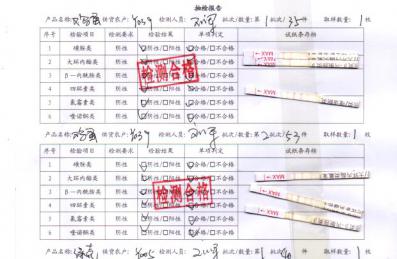 抽检报告
产品名称:鸡蛋 供货农户:4039 检测人员: 批次/数量:第1/53件 取样数量:1枚
序号 检验项目 检测要求 检验结果 单项判定 试纸条存档
1 磺胺类 阴性 ☑阴性/□阳性 ☑合格/□不合格
2 大环内酯类 阴性 ☑阴性/□阳性 ☑合格/□不合格
3 β-内酰胺类 阴性 ☑阴性/□阳性 ☑合格/□不合格
4 四环素类 阴性 ☑阴性/□阳性 ☑合格/□不合格
5 氟霉素类 阴性 ☑阴性/□阳性 ☑合格/□不合格
6 喹诺酮类 阴性 ☑阴性/□阳性 ☑合格/□不合格
检测合格
MAX
MAX
产品名称:鸡蛋 供货农户:4039 检测人员: 批次/数量:第2/53件 取样数量:1枚
序号 检验项目 检测要求 检验结果 单项判定 试纸条存档
1 磺胺类 阴性 ☑阴性/□阳性 ☑合格/□不合格
2 大环内酯类 阴性 ☑阴性/□阳性 ☑合格/□不合格
3 β-内酰胺类 阴性 ☑阴性/□阳性 ☑合格/□不合格
4 四环素类 阴性 ☑阴性/□阳性 ☑合格/□不合格
5 氟霉素类 阴性 ☑阴性/□阳性 ☑合格/□不合格
6 喹诺酮类 阴性 ☑阴性/□阳性 ☑合格/□不合格
检测合格
MAX
MAX
MAX
产品名称: 供货农户:4005 检测人员: 批次/数量:第1/ 件 取样数量:1枚